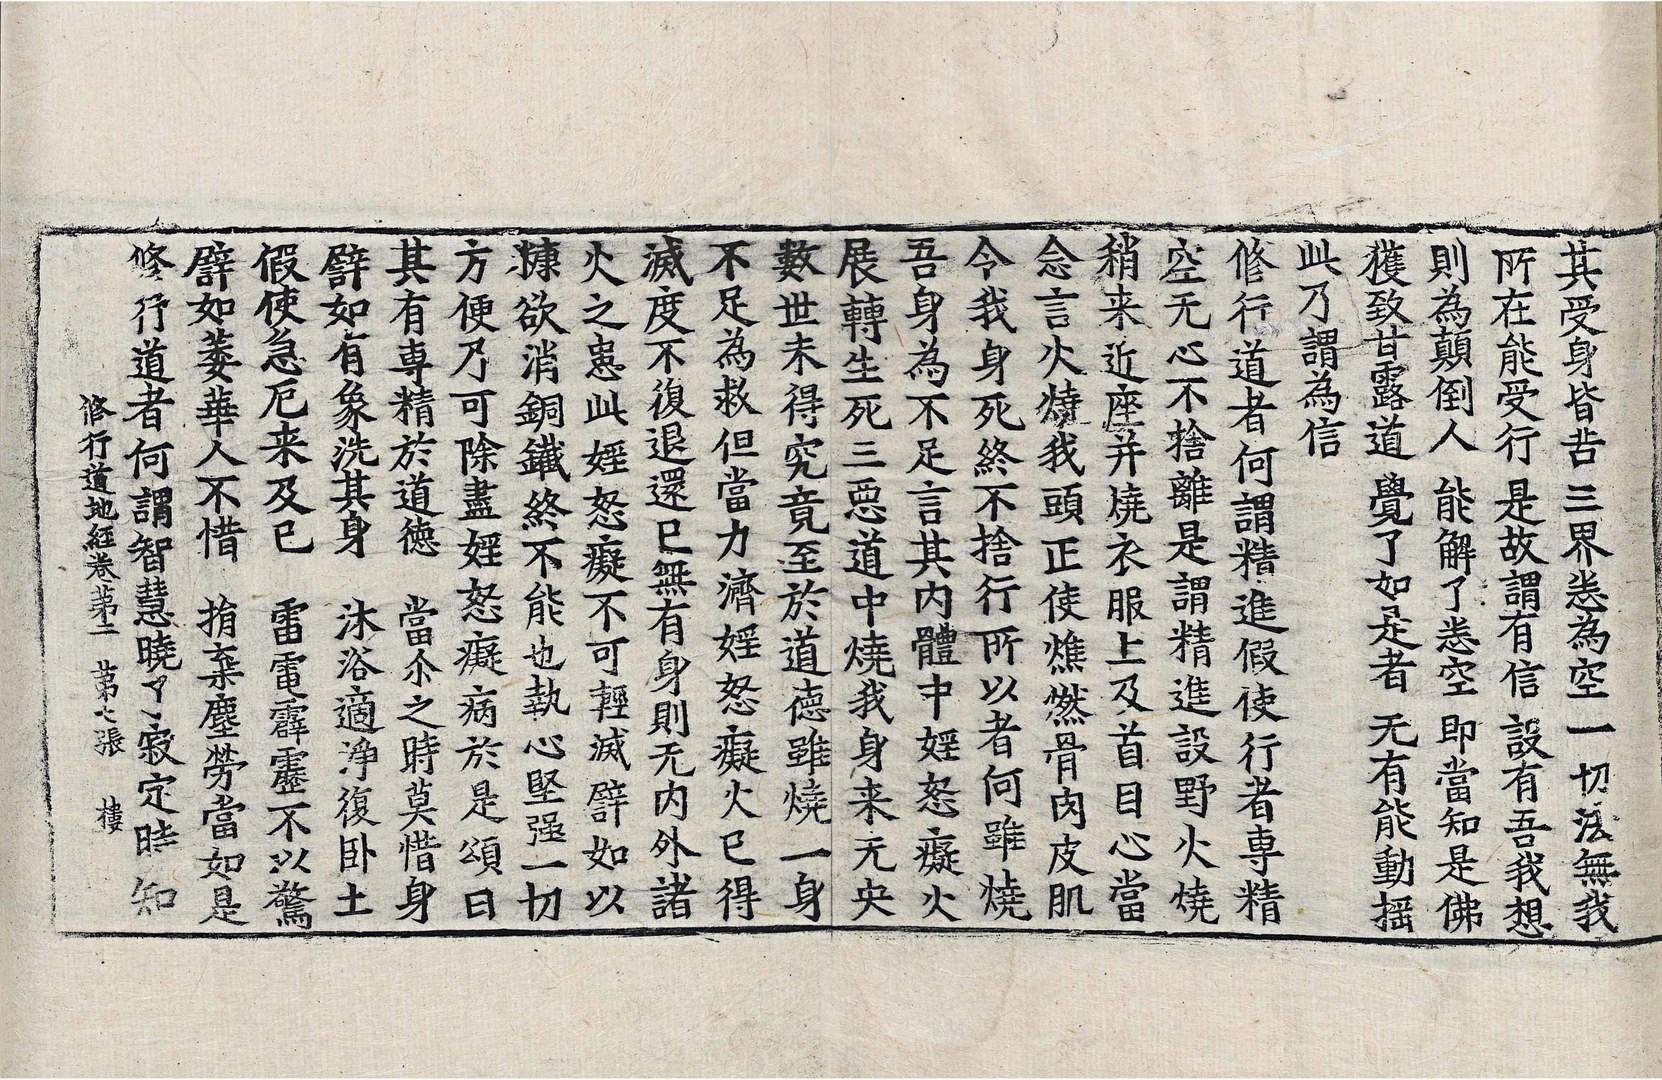 其受身皆苦 三界悉為空 一切法無我
所在能受行 是故謂有信 設有吾我想
則為顛倒人 能解了悉空 即當知是佛
獲致甘露道 覺了如是者 无有能動揺
此乃謂為信
修行道者何謂精進假使行者専精
空无心不捨離是謂精進設野火燒
稍来近座并燒衣服上及首目心當
念言火燒我頭正使燋燃骨肉皮肌
令我身死終不捨行所以者何雖燒
吾身為不足言其内體中婬怒癡火
展轉生死三惡道中燒我身来无央
數世未得究竟至於道德雖燒一身
不足為救但當力濟婬怒癡火已得
滅度不復退還已無有身則无内外諸
火之患此婬怒癡不可輕滅譬如以
糠欲消銅鐵終不能也執心堅强一切
方便乃可除盡婬怒癡病於是頌曰
其有専精於道德 當尒之時莫惜身
譬如有象洗其身 沐浴適淨復卧土
假使急厄来及已 雷電霹靂不以驚
譬如萎華人不惜 捐棄塵勞當如是
修行道者何謂智慧曉了寂定時知
修行道地経卷第二 第七張 樓